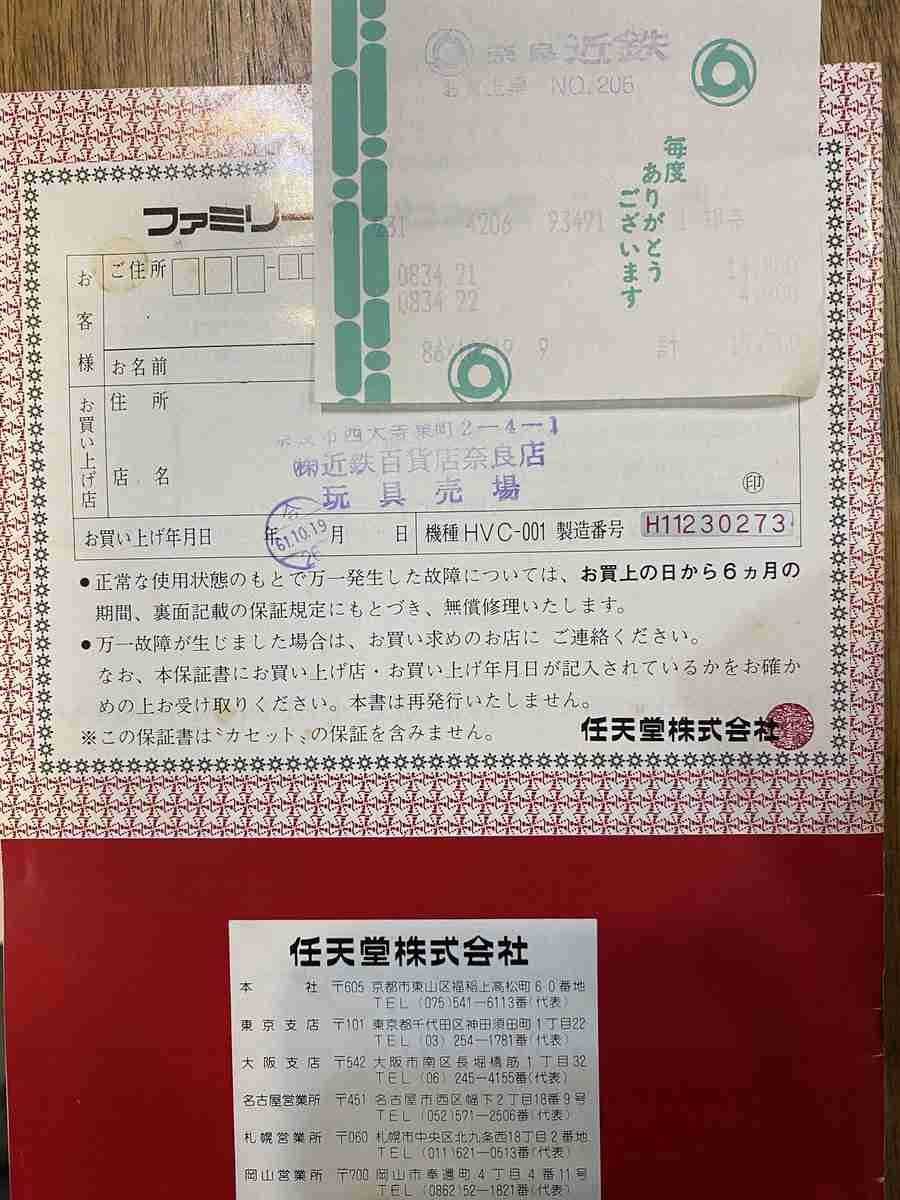 奈良近鉄
お買上票 NO.206
毎度
ありがとう
ございます
4206 93491
0834 21
0834 22
9 計
ファミリー
お客様
ご住所
お名前
お買い上げ店
住所
店名
2-4-1
㈱近鉄百貨店奈良店
玩具売場
印
お買い上げ年月日 年 月 日
61.10.19
機種 HVC-001 製造番号 H11230273
●正常な使用状態のもとで万一発生した故障については、お買上の日から6ヵ月の
期間、裏面記載の保証規定にもとづき、無償修理いたします。
●万一故障が生じました場合は、お買い求めのお店に ご連絡ください。
なお、本保証書にお買い上げ店・お買い上げ年月日が記入されているかをお確か
めの上お受け取りください。本書は再発行いたしません。
※この保証書は〝カセット〟の保証を含みません。
任天堂株式会社
任天堂株式会社
本社 〒605 京都市東山区福稲上高松町60番地
TEL (075)541-6113番(代表)
東京支店 〒101 東京都千代田区神田須田町1丁目22
TEL (03) 254-1781番(代表)
大阪支店 〒542 大阪市南区長堀橋筋1丁目32
TEL (06) 245-4155番(代表)
名古屋営業所 〒451 名古屋市西区幅下2丁目18番9号
TEL (052)571-2506番(代表)
札幌営業所 〒060 札幌市中央区北九条西18丁目2番地
TEL (011)621-0513番(代表)
岡山営業所 〒700 岡山市奉還町4丁目4番11号
TEL (0862)52-1821番(代表)